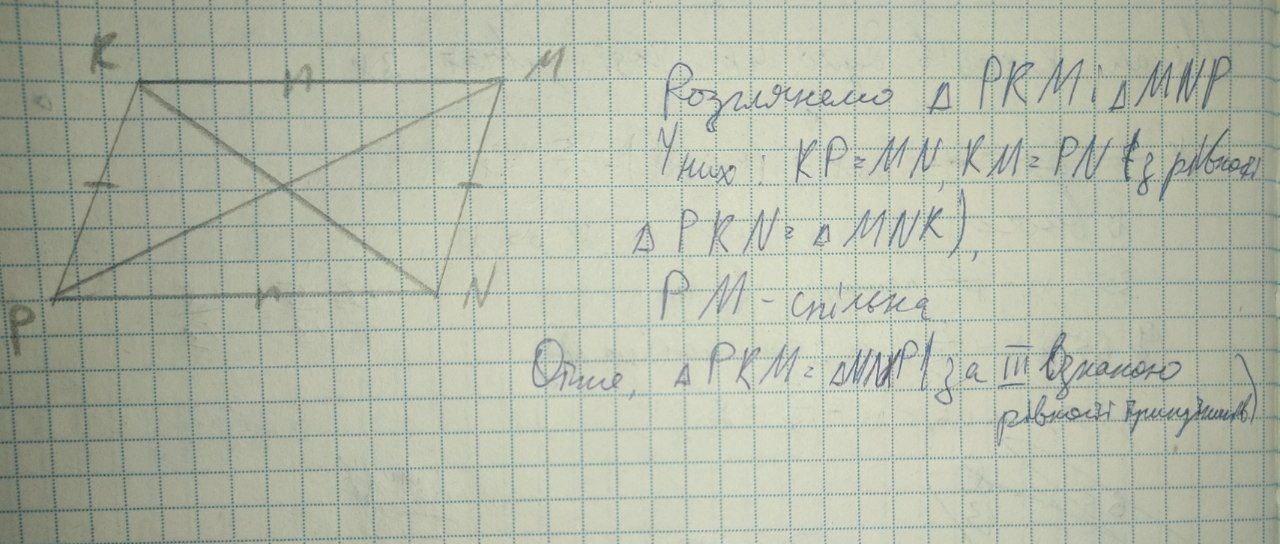 K
M
P
N
Розглянемо Δ PKM і Δ MNP
У них : KP = MN, KM = PN (з рівності
Δ PKN = Δ MNK),
PM - спільна
Отже, Δ PKM = Δ MNP (за III ознакою
рівності трикутників)